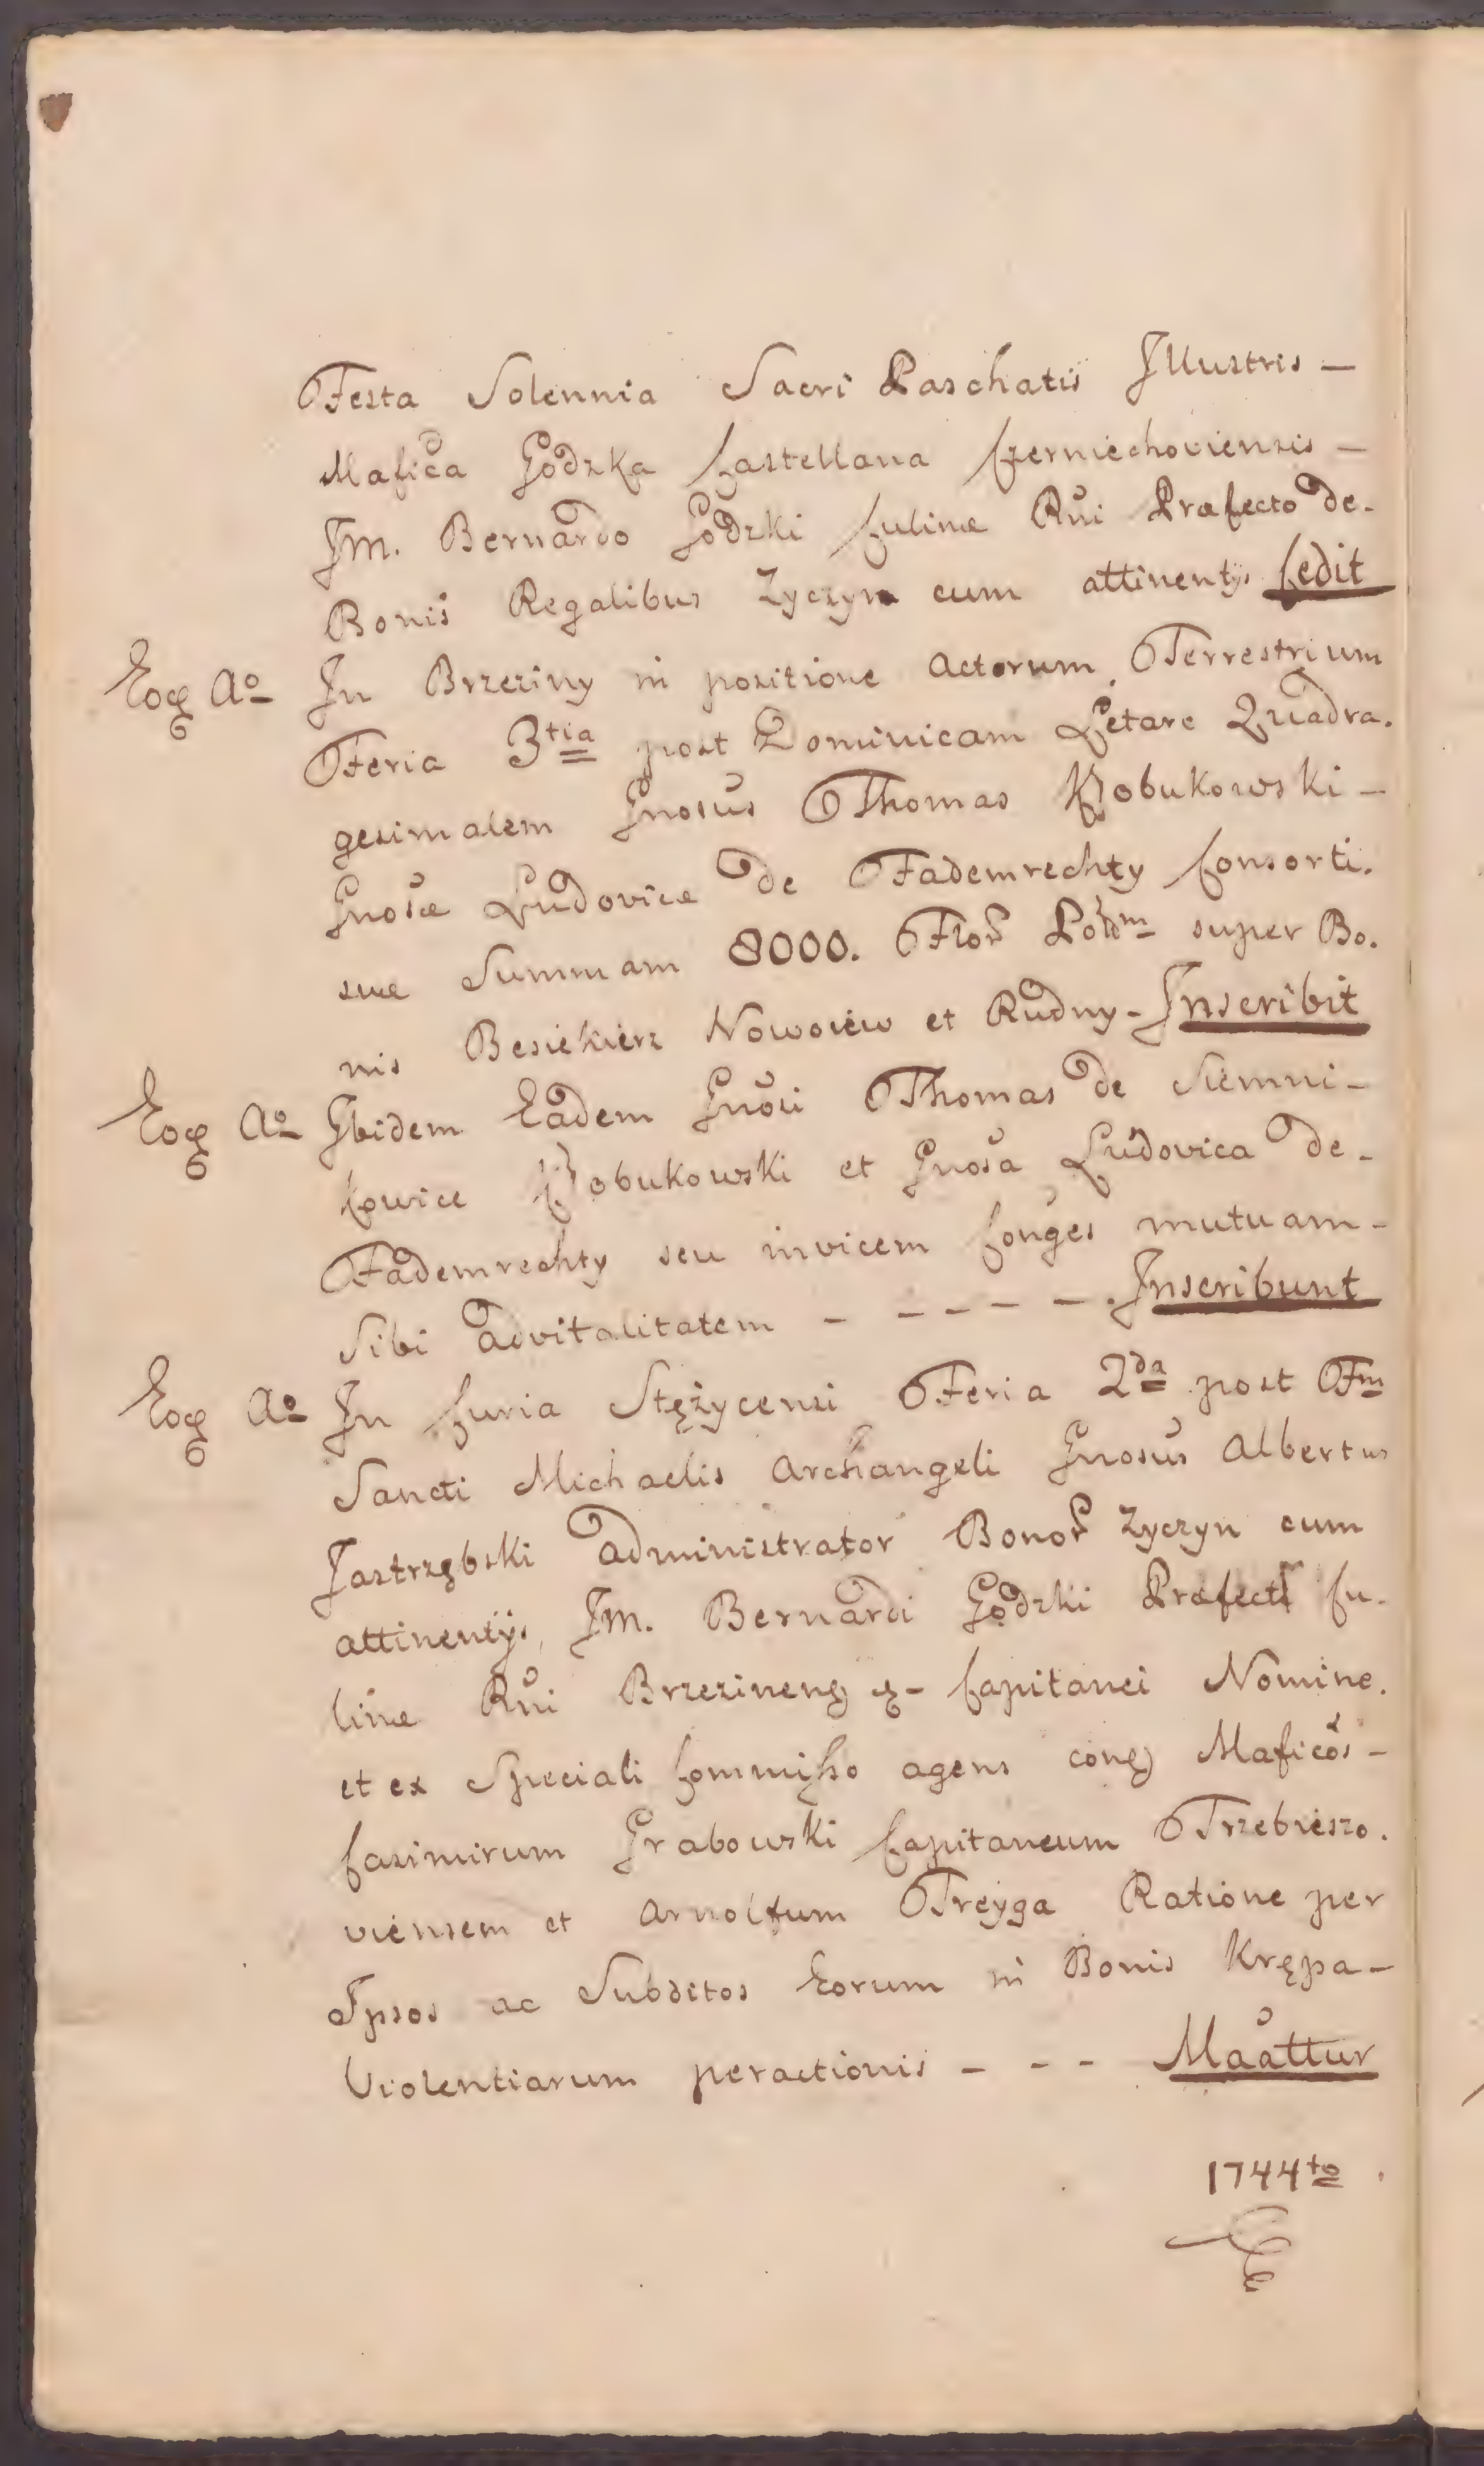 Festa Solennia Sacri Paschatis Illustris –
Mafica Godzka Castellana Czerniechoviensis –
Im. Bernardo Godzki Culinæ Rni Præfecto de-
Bonis Regalibus Zyczyn cum attinentÿs Cedit
Eoq Ao In Brzeziny in positione Actorum Terrestrium
Feria 3tia post Dominicam Letare Quadra-
gesimalem Gnosus Thomas Kobukowski –
Gnosæ Ludovicæ de Fademrechty Consorti-
suæ Summam 8000. Flor Poldm super Bo-
nis Besiekierz Nowoiew et Rudny – Inscribit
Eoq Ao Ibidem Eadem Gnosi Thomas de Siemni-
kowice Kobukowski et Gnosa Ludovica de-
Fademrechty seu invicem Conges mutuam-
Sibi advitalitatem – – – – – Inscribunt
Eoq Ao In Curia Stężycensi Feria 2da post Fm
Sancti Michaelis Archangeli Gnosus Albertus
Jastrzębski administrator Bonor Zyczyn cum
attinentÿs, Im. Bernardi Godzki Præfecti Cu-
linæ Rni Brzezineng Capitanei Nomine.
et ex Speciali Commißo agens cong Maficos –
Casimirum Grabowski Capitaneum Trzebieszo-
viensem et Arnolfum Treyga Ratione per
Ipsos ac Subditos Eorum in Bonis Krępa –
Violentiarum peractionis – – – Maattur
1744to